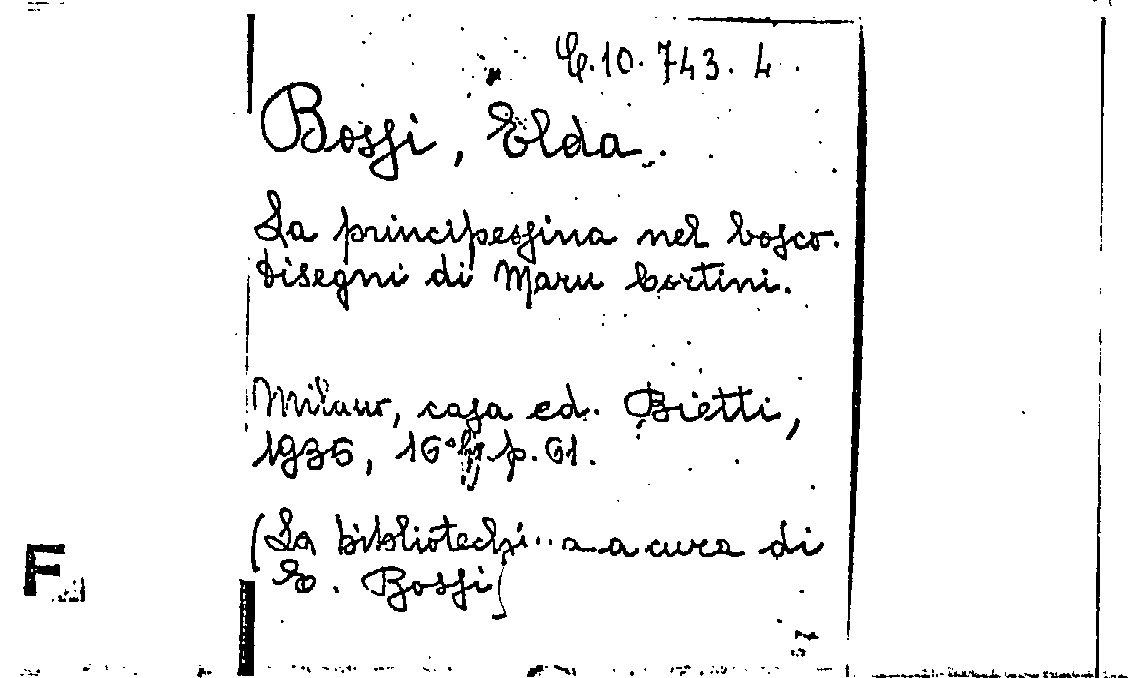 C.10.743.4.
Bossi, Elda.
La principessina nel bosco.
Disegni di Maru Cortini.
Milano, casa ed. Bietti,
1936, 16° p. 61.
(La bibliotechina a cura di
E. Bossi)
F